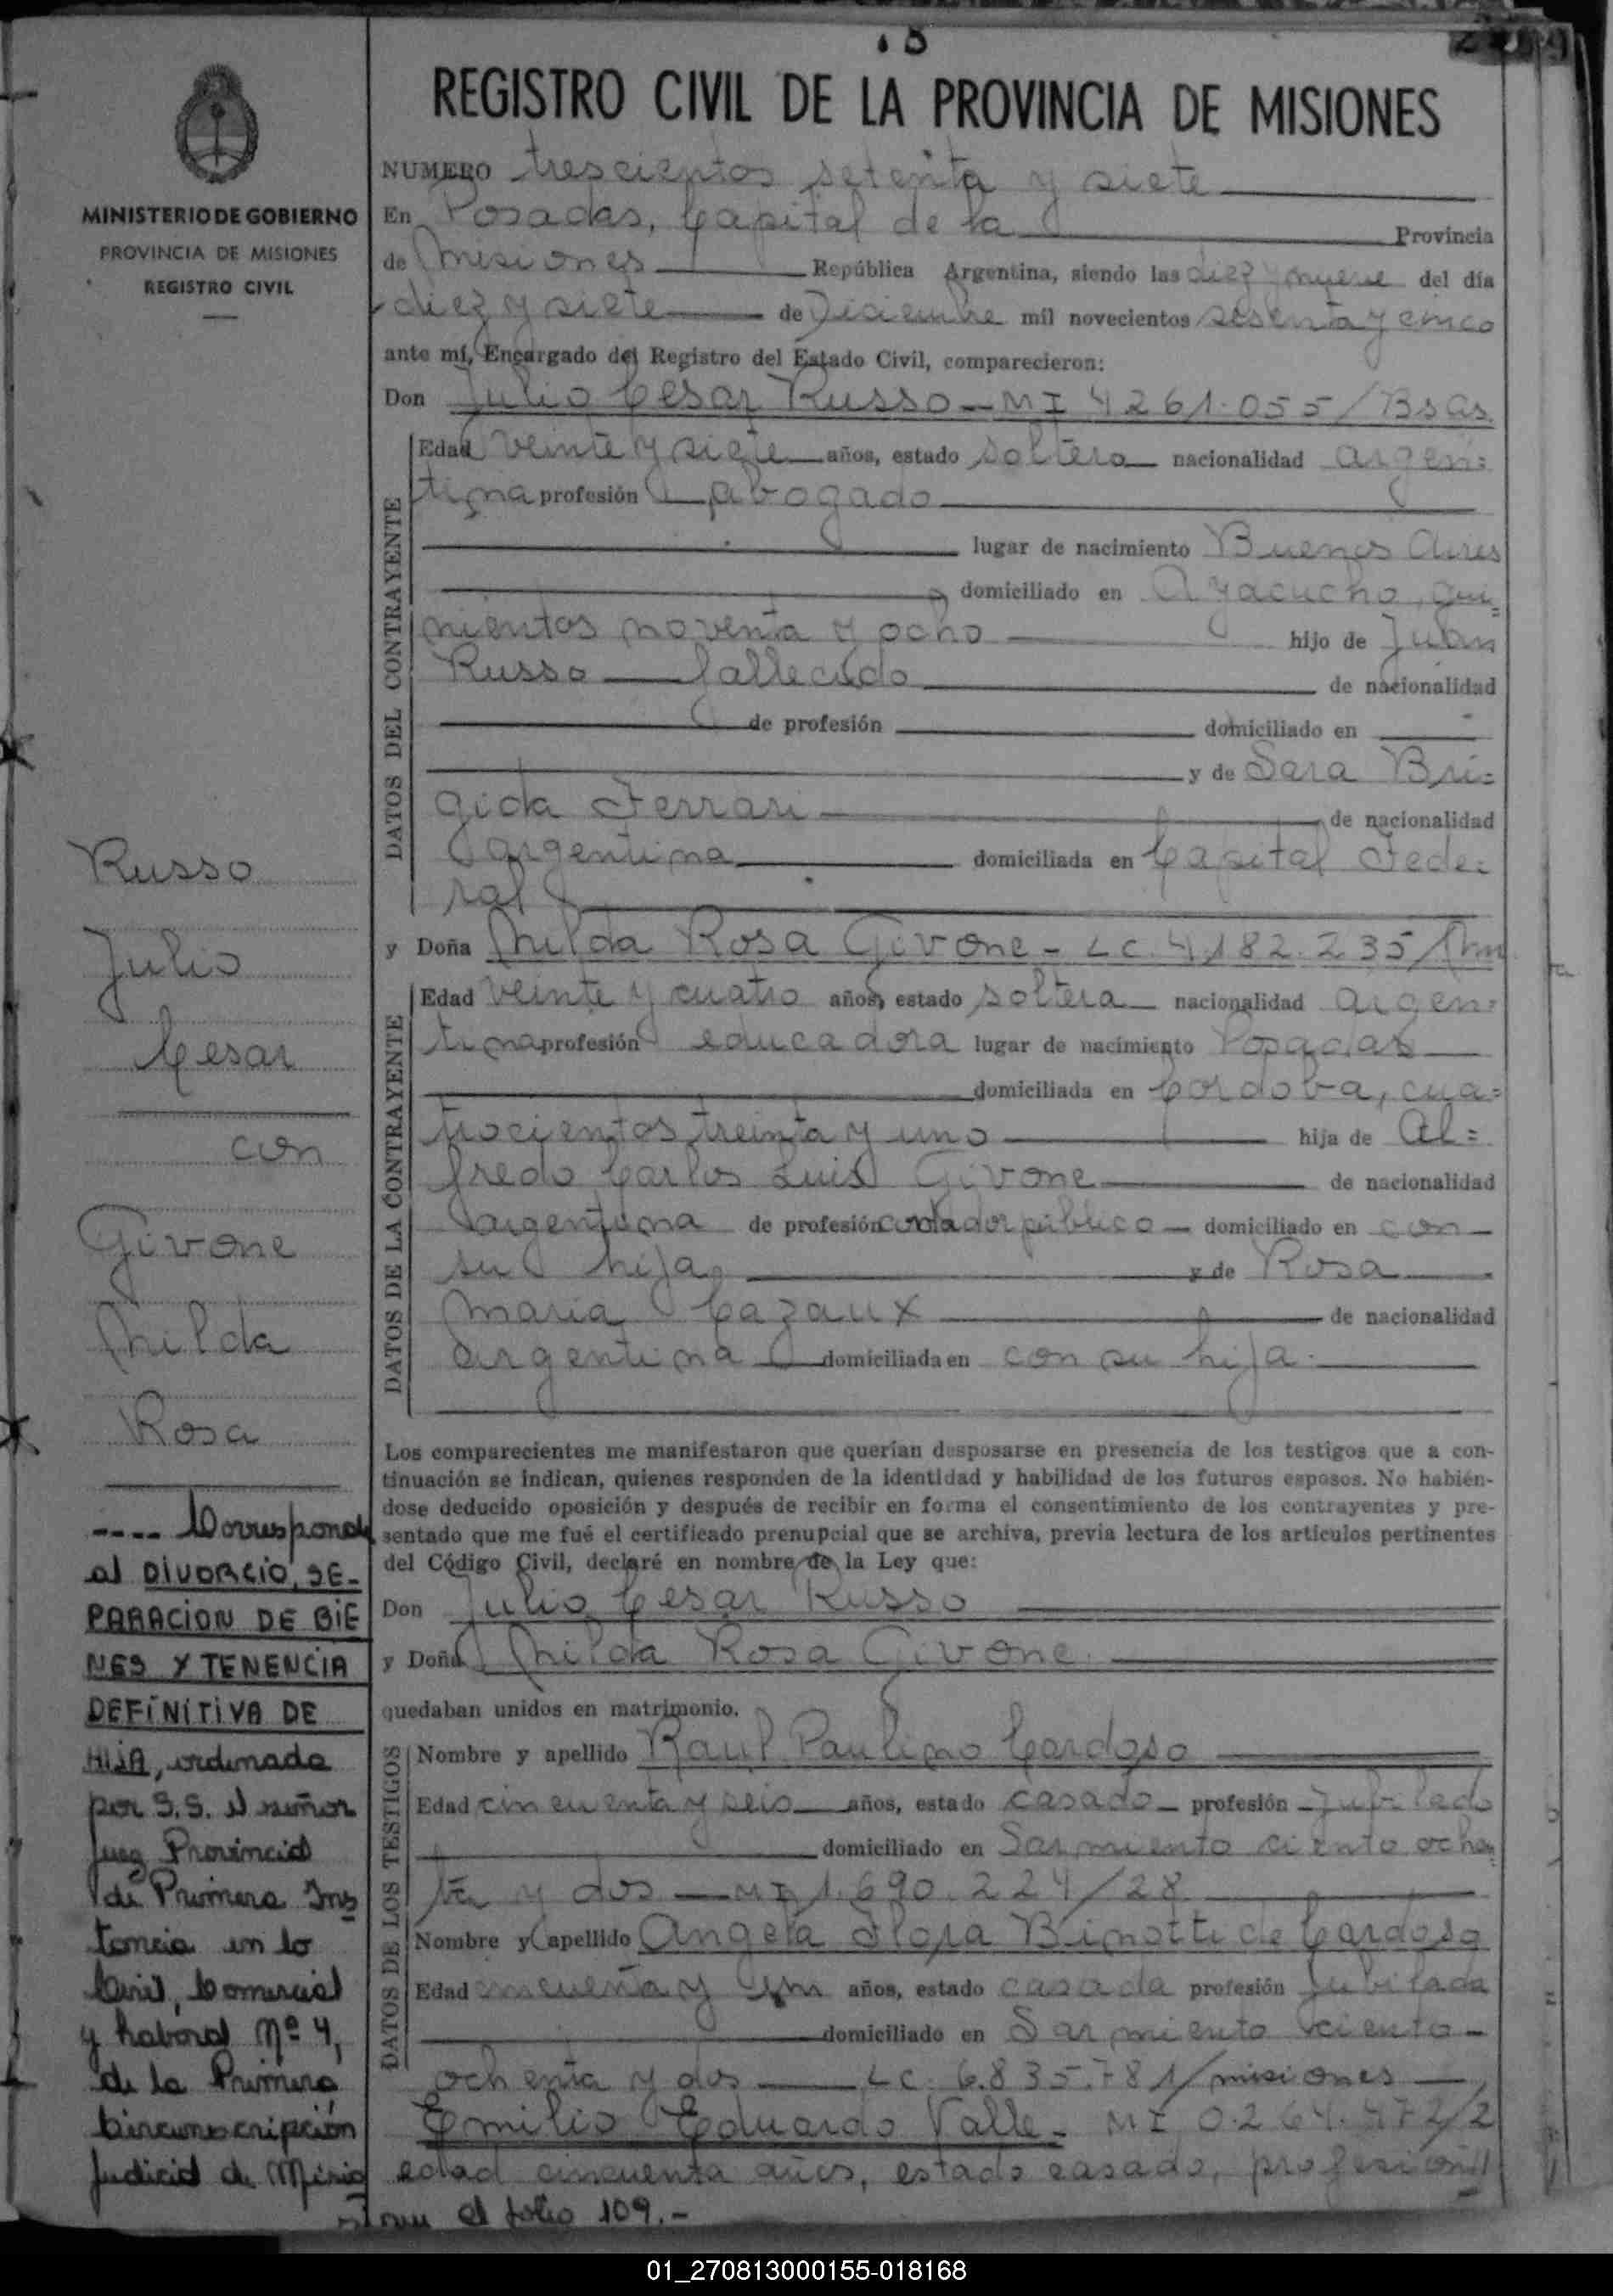 REGISTRO CIVIL DE LA PROVINCIA DE MISIONES
MINISTERIO DE GOBIERNO
PROVINCIA DE MISIONES
REGISTRO CIVIL
Russo
Julio
Cesar
con
Givone
Nilda
Rosa
---- Corresponde
al DIVORCIO, SE-
PARACION DE BIE
NES Y TENENCIA
DEFINITIVA DE
HIJA, ordenada
por S.S. el señor
Juez Provincial
de Primera Ins
tancia en lo
Civil, Comercial
y Laboral Nº 4,
de la Primera
Circunscripción
Judicial de Misio
el folio 109.-
NUMERO trescientos setenta y siete
En Posadas, Capital de la Provincia
de Misiones República Argentina, siendo las diez y nueve del día
diez y siete de Diciembre mil novecientos sesenta y cinco
ante mí, Encargado del Registro del Estado Civil, comparecieron:
Don Julio Cesar Russo - MI 4261.055/BsAs.
DATOS DEL CONTRAYENTE
Edad veinte y siete años, estado soltero nacionalidad argen=
tina profesión abogado
lugar de nacimiento Buenos Aires
domiciliado en Ayacucho, qui=
nientos noventa y ocho hijo de Juan
Russo fallecido de nacionalidad
de profesión domiciliado en
y de Sara Bri=
gida Ferrari de nacionalidad
argentina domiciliada en Capital Fede=
ral
y Doña Nilda Rosa Givone - LC. 4.182.235/
DATOS DE LA CONTRAYENTE
Edad veinte y cuatro años, estado soltera nacionalidad argen=
tina profesión educadora lugar de nacimiento Posadas
domiciliada en Cordoba, cua=
trocientos treinta y uno hija de Al=
fredo Carlos Luis Givone de nacionalidad
argentina de profesión contador público domiciliado en con
su hija y de Rosa
Maria Cazaux de nacionalidad
argentina domiciliada en con su hija.
Los comparecientes me manifestaron que querían desposarse en presencia de los testigos que a con-
tinuación se indican, quienes responden de la identidad y habilidad de los futuros esposos. No habién-
dose deducido oposición y después de recibir en forma el consentimiento de los contrayentes y pre-
sentado que me fué el certificado prenupcial que se archiva, previa lectura de los artículos pertinentes
del Código Civil, declaré en nombre de la Ley que:
Don Julio Cesar Russo
y Doña Nilda Rosa Givone.
quedaban unidos en matrimonio.
DATOS DE LOS TESTIGOS
Nombre y apellido Raul Paulino Cardoso
Edad cincuenta y seis años, estado casado profesión Jubilado
domiciliado en Sarmiento ciento ochen=
ta y dos - MI 1.690.224/28
Nombre y apellido Angela Flora Binotti de Cardoso
Edad cincuenta y un años, estado casada profesión Jubilada
domiciliado en Sarmiento ciento
ochenta y dos LC. 6.835.781/misiones
Emilio Eduardo Valle - MI 0.264.472/2
edad cincuenta años, estado casado, profesion
01_270813000155-018168